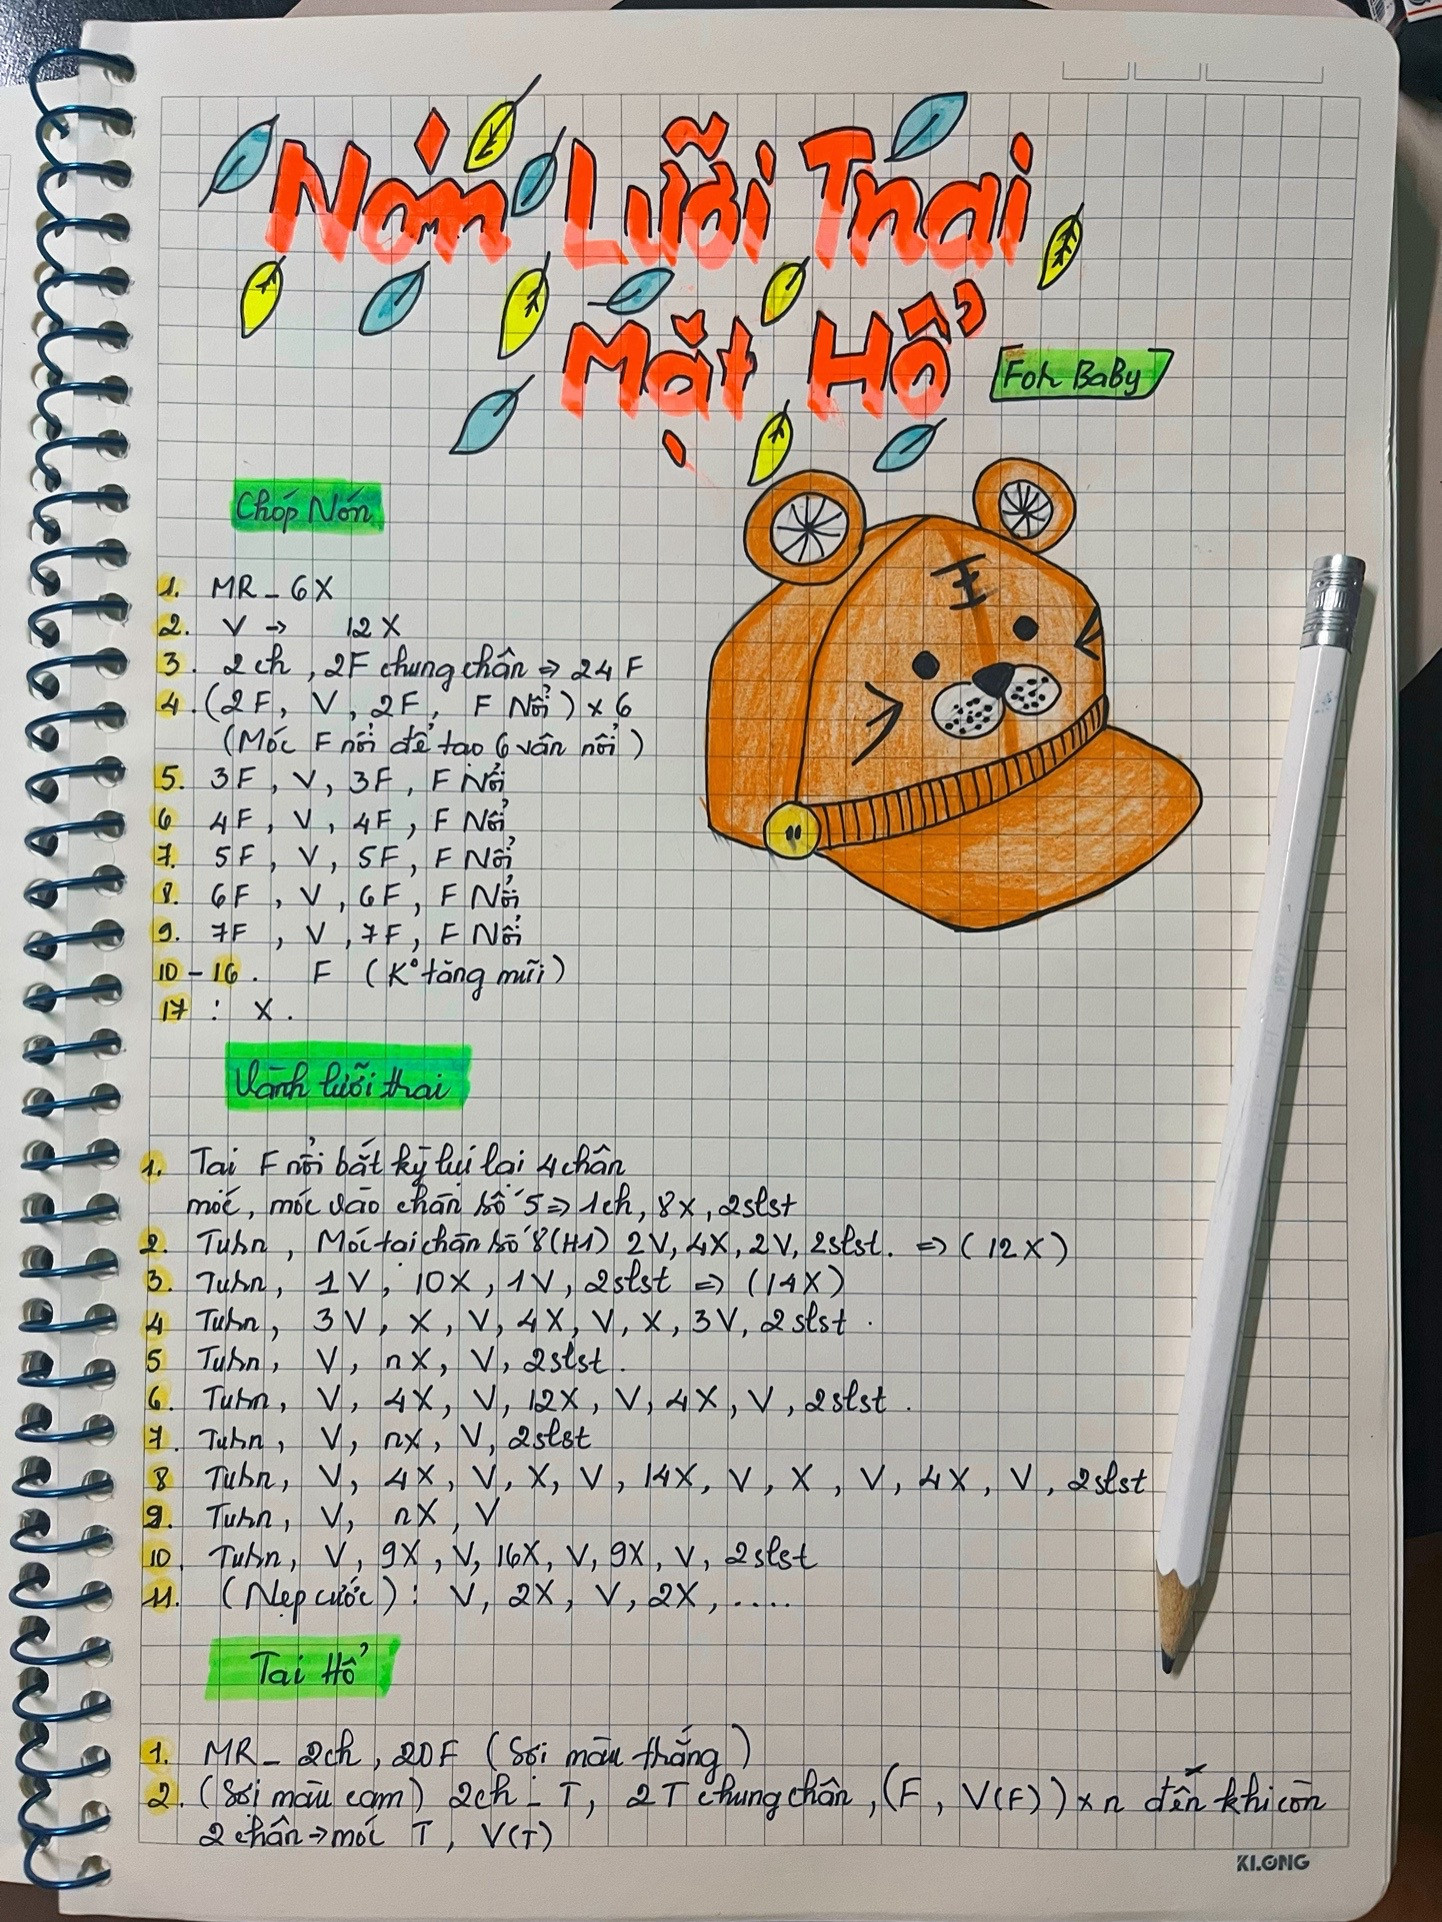 Nón Lưỡi Trai
Mặt Hổ
For BaBy
Chóp Nón
1. MR - 6X
2. V → 12X
3. 2ch, 2F chung chân ⇒ 24F
4. (2F, V, 2F, F Nổi) x 6
(Móc F nổi để tạo 6 vân nổi)
5. 3F, V, 3F, F Nổi
6 4F, V, 4F, F Nổi
7. 5F, V, 5F, F Nổi
8. 6F, V, 6F, F Nổi
9. 7F, V, 7F, F Nổi
10-16. F (K° tăng mũi)
17: X.
Vành lưỡi trai
1. Tại F nổi bất kỳ lùi lại 4 chân
móc, móc vào chân số 5 ⇒ 1ch, 8X, 2slst
2. Turn, Móc tại chân số 8 (H1) 2V, 4X, 2V, 2slst. ⇒ (12X)
3. Turn, 1V, 10X, 1V, 2slst ⇒ (14X)
4 Turn, 3V, X, V, 4X, V, X, 3V, 2slst.
5 Turn, V, nX, V, 2slst.
6. Turn, V, 4X, V, 12X, V, 4X, V, 2slst.
7. Turn, V, nX, V, 2slst
8 Turn, V, 4X, V, X, V, 14X, V, X, V, 4X, V, 2slst
9. Turn, V, nX, V
10. Turn, V, 9X, V, 16X, V, 9X, V, 2slst
11. (Nẹp cước): V, 2X, V, 2X, ....
Tai Hổ
1. MR - 2ch, 20F (Sợi màu trắng)
2. (Sợi màu cam) 2ch - T, 2T chung chân, (F, V(F)) x n đến khi còn
2 chân → móc T, V(T)
KLONG